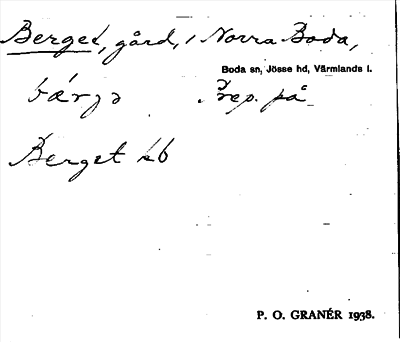 Berget, gård, i Norra Boda,
Boda sn, Jösse hd, Värmlands l.
bárjə Prep. på
Berget kb
P. O. GRANÉR 1938.